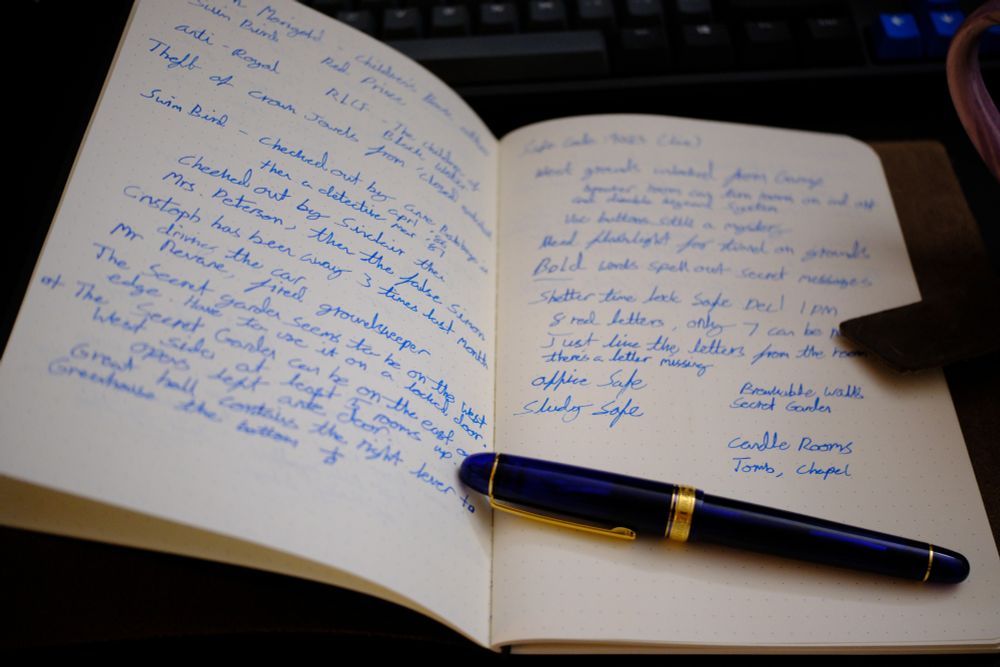 Marigold - Children's Book
Swim Bird Red Prince
anti-Royal RLCF - The children of
Theft of crown Jewels from
Swim Bird - checked out by
then a detective
Checked out by Sinclair then
Mrs. Peterson, then the false Simon
Cristoph has been away 3 times last month
drives the car
Mr Nevane, fired groundskeeper
The Secret garden seems to be on the West
edge. Have to use it on a locked door.
The Secret Garden can be on the east or
West side at least 5 rooms up
opens left ante door
Great hall contains the right lever to
Greenhouse the bottom
Safe Code
West grounds unlocked from Garage
and disable keycard system
Use buttons still a mystery
Need flashlight for tunnel on grounds
Bold words spell out secret messages
Shelter time lock Safe Dec 1 1 pm
8 red letters, only 7 can be
Just like the letters from the room
there's a letter missing
office Safe
Study Safe
Breakable Walls
Secret Garden
Candle Rooms
Tomb, Chapel